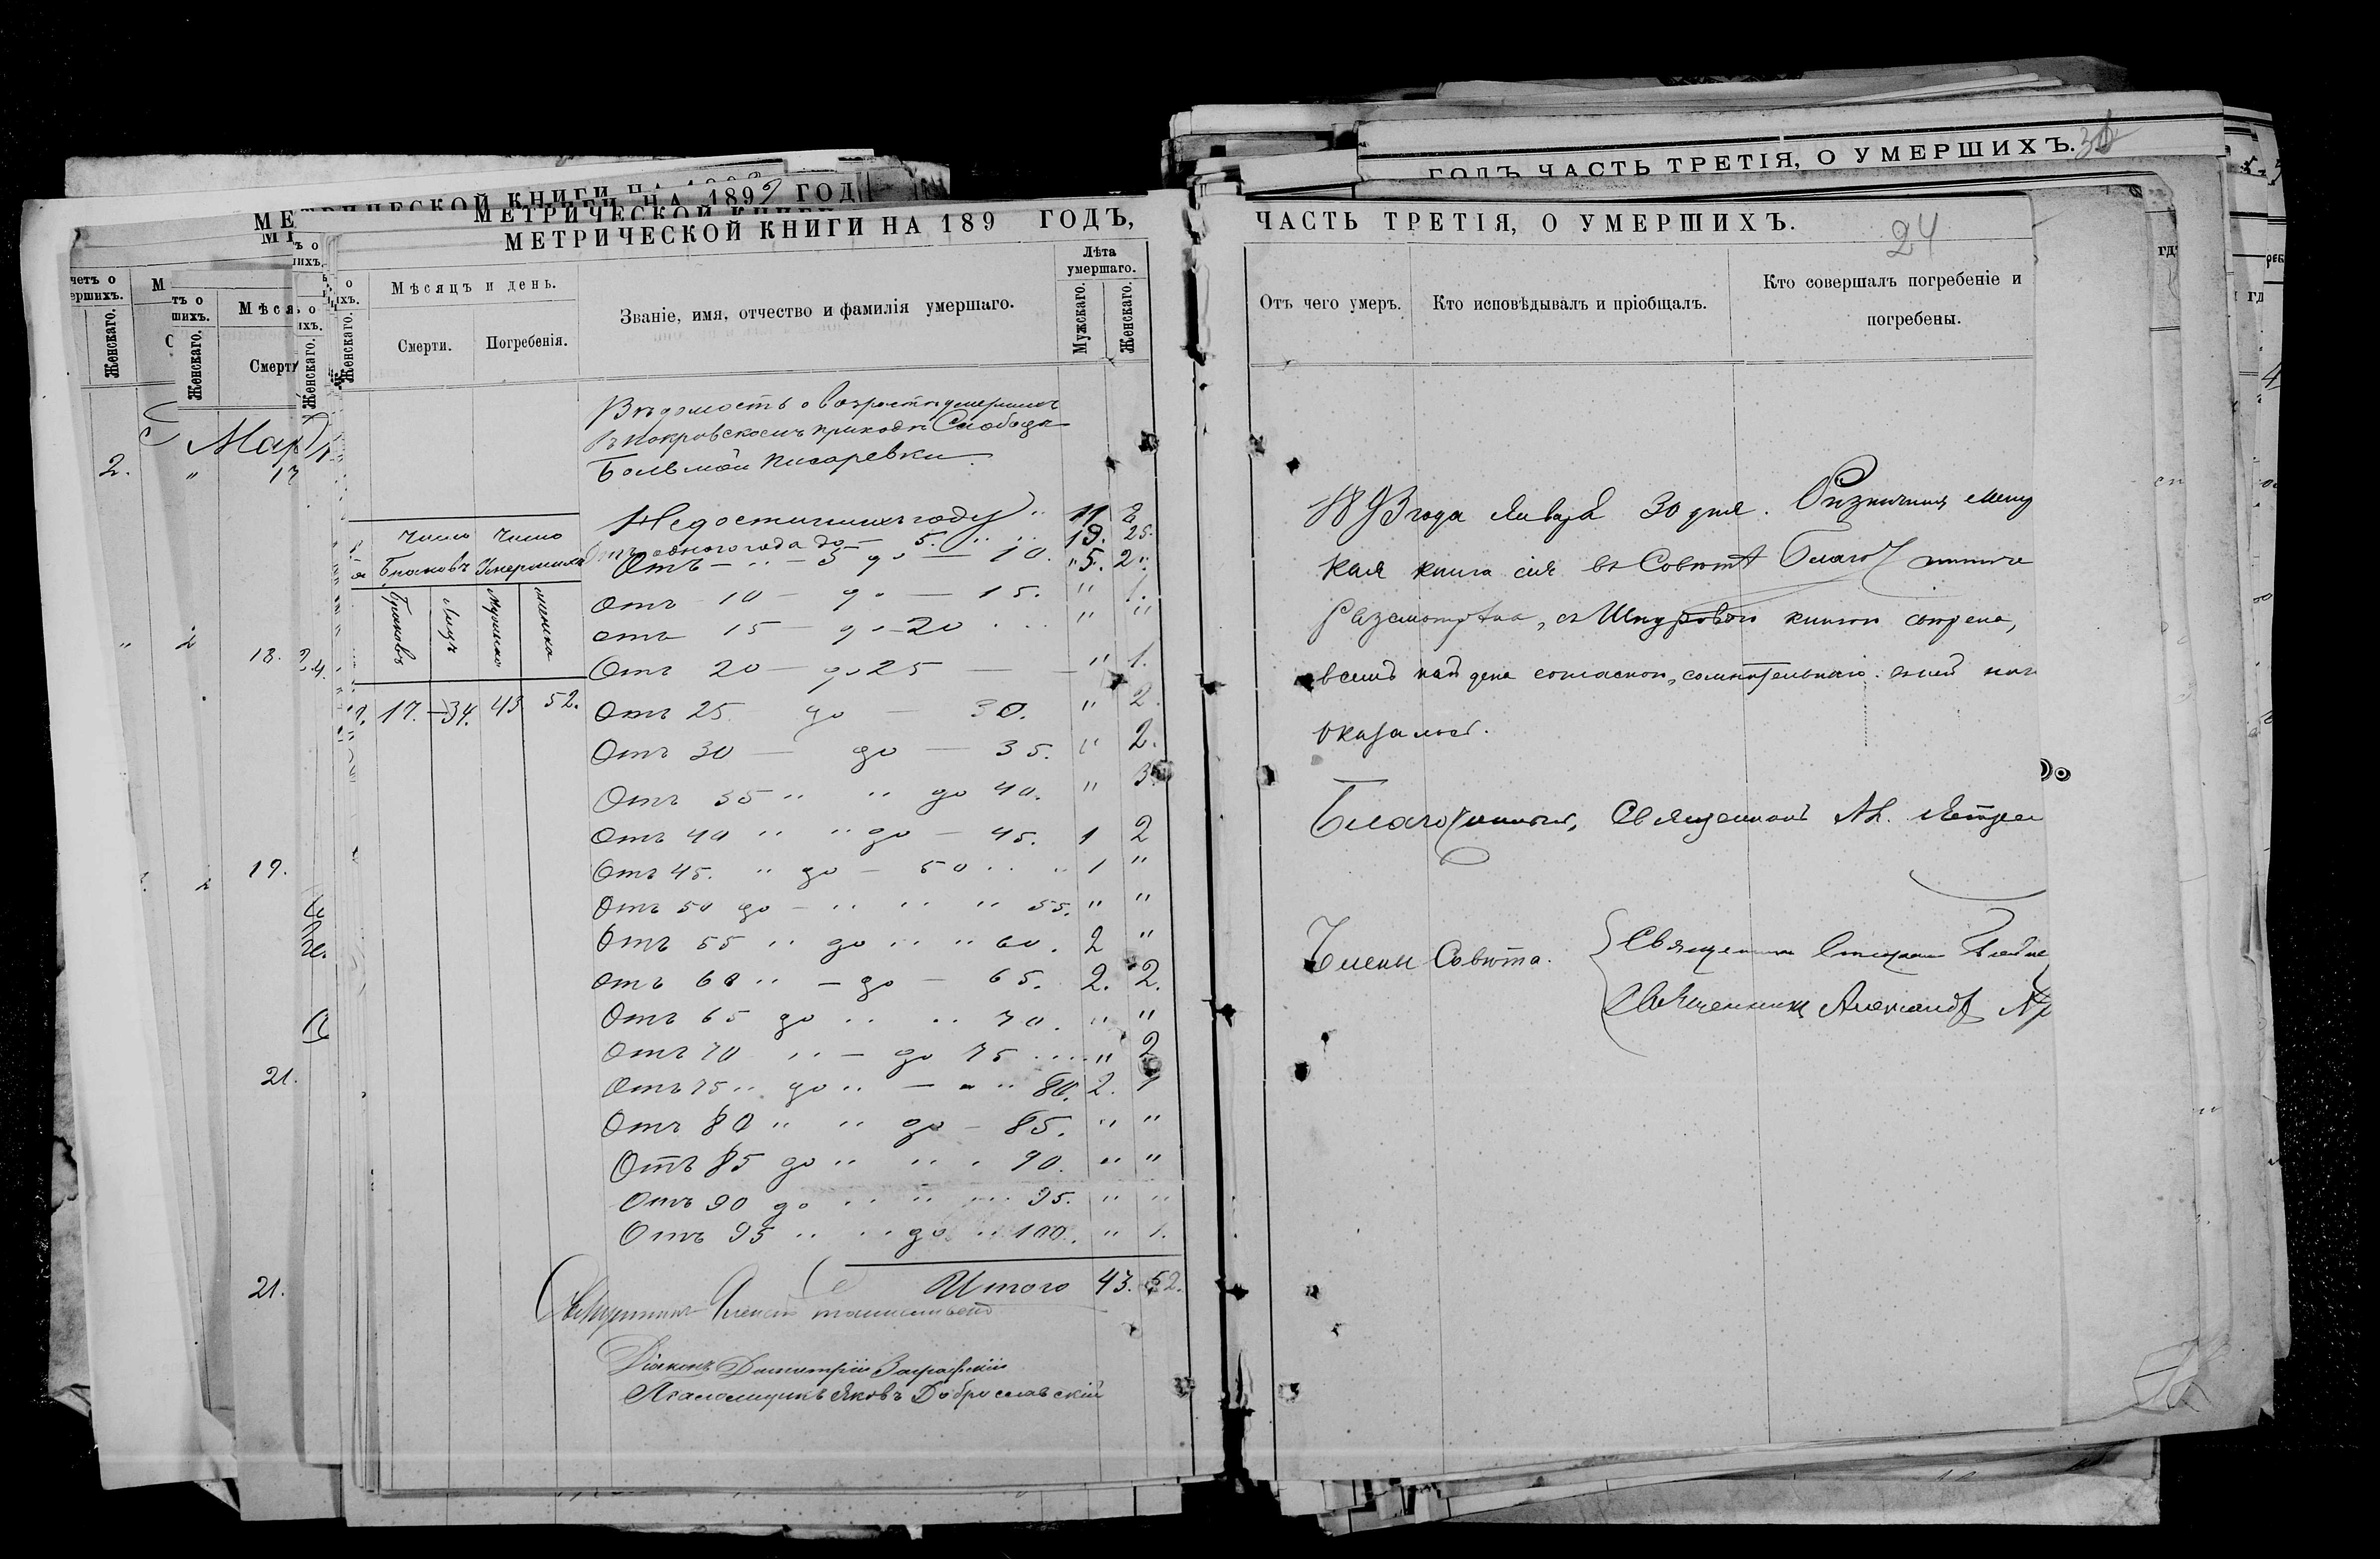 МЕТРИЧЕСКОЙ КНИГИ НА 1892 ГОД
МЕТРИЧЕСКОЙ КНИГИ НА 189 ГОДЪ,
Мѣсяцъ и день.
Смерти.
Погребенія.
Званіе, имя, отчество и фамилія умершаго.
Лѣта
умершаго.
Мужскаго.
Женскаго.
Вѣдомость о возрастѣ умершихъ
въ Покровскомъ приходѣ Слободы
Большой Писаревки.
Число Число
Браковъ Умершихъ
Браковъ Лицъ Мужска женска
17. 34. 43 52.
Недостигшихъ году " 11 2
Отъ одного года до — 5. " " 19. 25.
Отъ — " — 5 до — 10. "5. 2".
Отъ 10 — до — 15. " 1.
отъ 15 — до 20 . . . " "
Отъ 20 — до 25 — — " 1.
Отъ 25 до — 30. " 2.
Отъ 30 — до — 35. " 2.
Отъ 35 " " до 40. " 3.
Отъ 40 " " до — 45. 1 2
Отъ 45. " до — 50 . . " 1 "
Отъ 50 до — " " " 55. " "
Отъ 55 " до " " 60. 2 "
отъ 60 " — до — 65. 2. 2.
Отъ 65 до " " 70. " "
Отъ 70 " — до 75 .... " 2
Отъ 75 " до " — " " 80. 2. 1
Отъ 80 " " до — 85. " "
Отъ 85 до " " " 90. " "
Отъ 90 до " " " 95. " "
Отъ 95 " " до " 100. " 1.
Итого 43. 52.
Священникъ Алексій
Діаконъ Димитрій
Псаломщикъ Яковъ Доброславскій
ГОДЪ ЧАСТЬ ТРЕТІЯ, О УМЕРШИХЪ.
ЧАСТЬ ТРЕТІЯ, О УМЕРШИХЪ.
24
Отъ чего умеръ.
Кто исповѣдывалъ и пріобщалъ.
Кто совершалъ погребеніе и
погребены.
1893 года Января 30 дня. Ризничная
кая книга сія въ Совѣтѣ
Разсмотрѣна, съ Шнуровою книгою сверена,
всемъ найдена согласною, сомнительнаго въ ней
оказалось.
Благочинный, Священникъ
Члены Совѣта.
Священникъ
Священникъ Александръ
Женскаго.
Женскаго.
Женскаго.
Женскаго.
2.
18.
19.
21.
21.